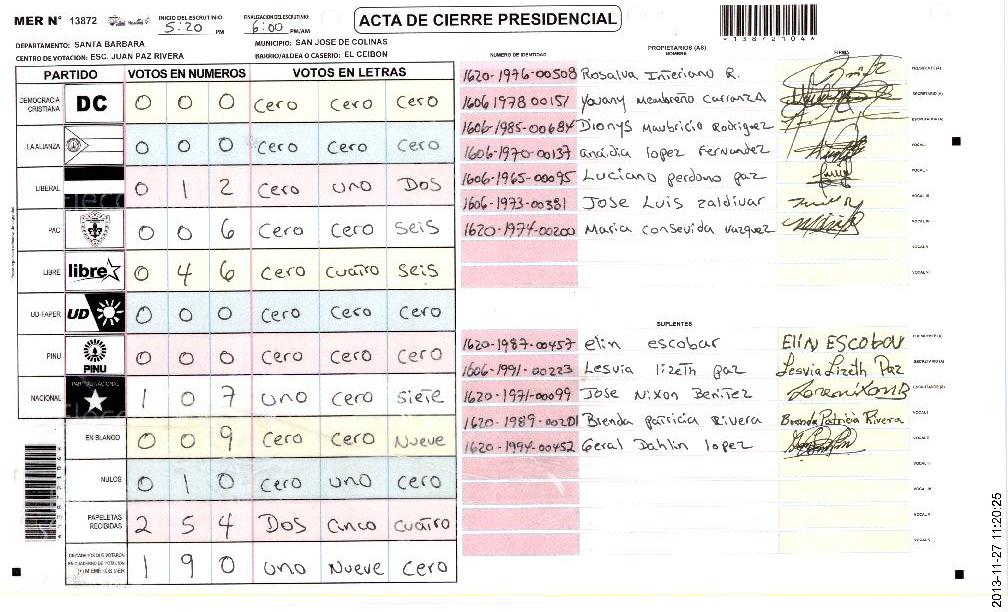 MER N° 13872 INICIO DEL ESCRUTINIO: 5:20 PM FINALIZACIÓN ESCRUTINIO: 6:00 PM/AM
ACTA DE CIERRE PRESIDENCIAL
DEPARTAMENTO: SANTA BARBARA MUNICIPIO: SAN JOSE DE COLINAS
CENTRO DE VOTACION: ESC. JUAN PAZ RIVERA BARRIO/ALDEA O CASERIO: EL CEIBON
PARTIDO VOTOS EN NUMEROS VOTOS EN LETRAS
DEMOCRACIA CRISTIANA DC 0 0 0 Cero Cero Cero
LA ALIANZA 0 0 0 Cero Cero Cero
LIBERAL 0 1 2 Cero uno Dos
PAC 0 0 6 Cero Cero Seis
LIBRE libre 0 4 6 Cero cuatro Seis
UD-FAPER UD 0 0 0 Cero Cero Cero
PINU PINU 0 0 0 Cero Cero Cero
NACIONAL 1 0 7 uno cero siete
EN BLANCO 0 0 9 Cero Cero Nueve
NULOS 0 1 0 Cero uno cero
PAPELETAS RECIBIDAS 2 5 4 Dos cinco cuatro
1 9 0 uno Nueve Cero
PROPIETARIOS (AS)
NUMERO DE IDENTIDAD NOMBRE FIRMA
1620-1976-00508 Rosalva Interiano R. PRESIDENTE(A)
1606 1978 00151 Yovany Membreño Carranza SECRETARIO(A)
1606-1985-00684 Dionys Maubricio Rodriguez ESCRUTADOR(A)
1606-1970-00137 anaidia lopez Fernandez VOCAL I
1606-1965-00095 Luciano perdomo paz VOCAL II
1606-1973-00381 Jose Luis zaldivar VOCAL III
1620-1974-00200 Maria Consevida vazquez VOCAL IV
VOCAL V
VOCAL VI
SUPLENTES
1620-1987-00457 elin escobar Elin Escobar
1606-1991-00223 Lesvia lizeth paz Lesvia Lizeth Paz SECRETARIO(A)
1620-1971-00099 Jose Nixon Benitez ESCRUTADOR(A)
1620-1989-00201 Brenda patricia Rivera Brenda Patricia Rivera VOCAL I
1620-1994-00452 Geral Dahlin lopez VOCAL II
VOCAL III
VOCAL IV
VOCAL V
2013-11-27 11:20:25